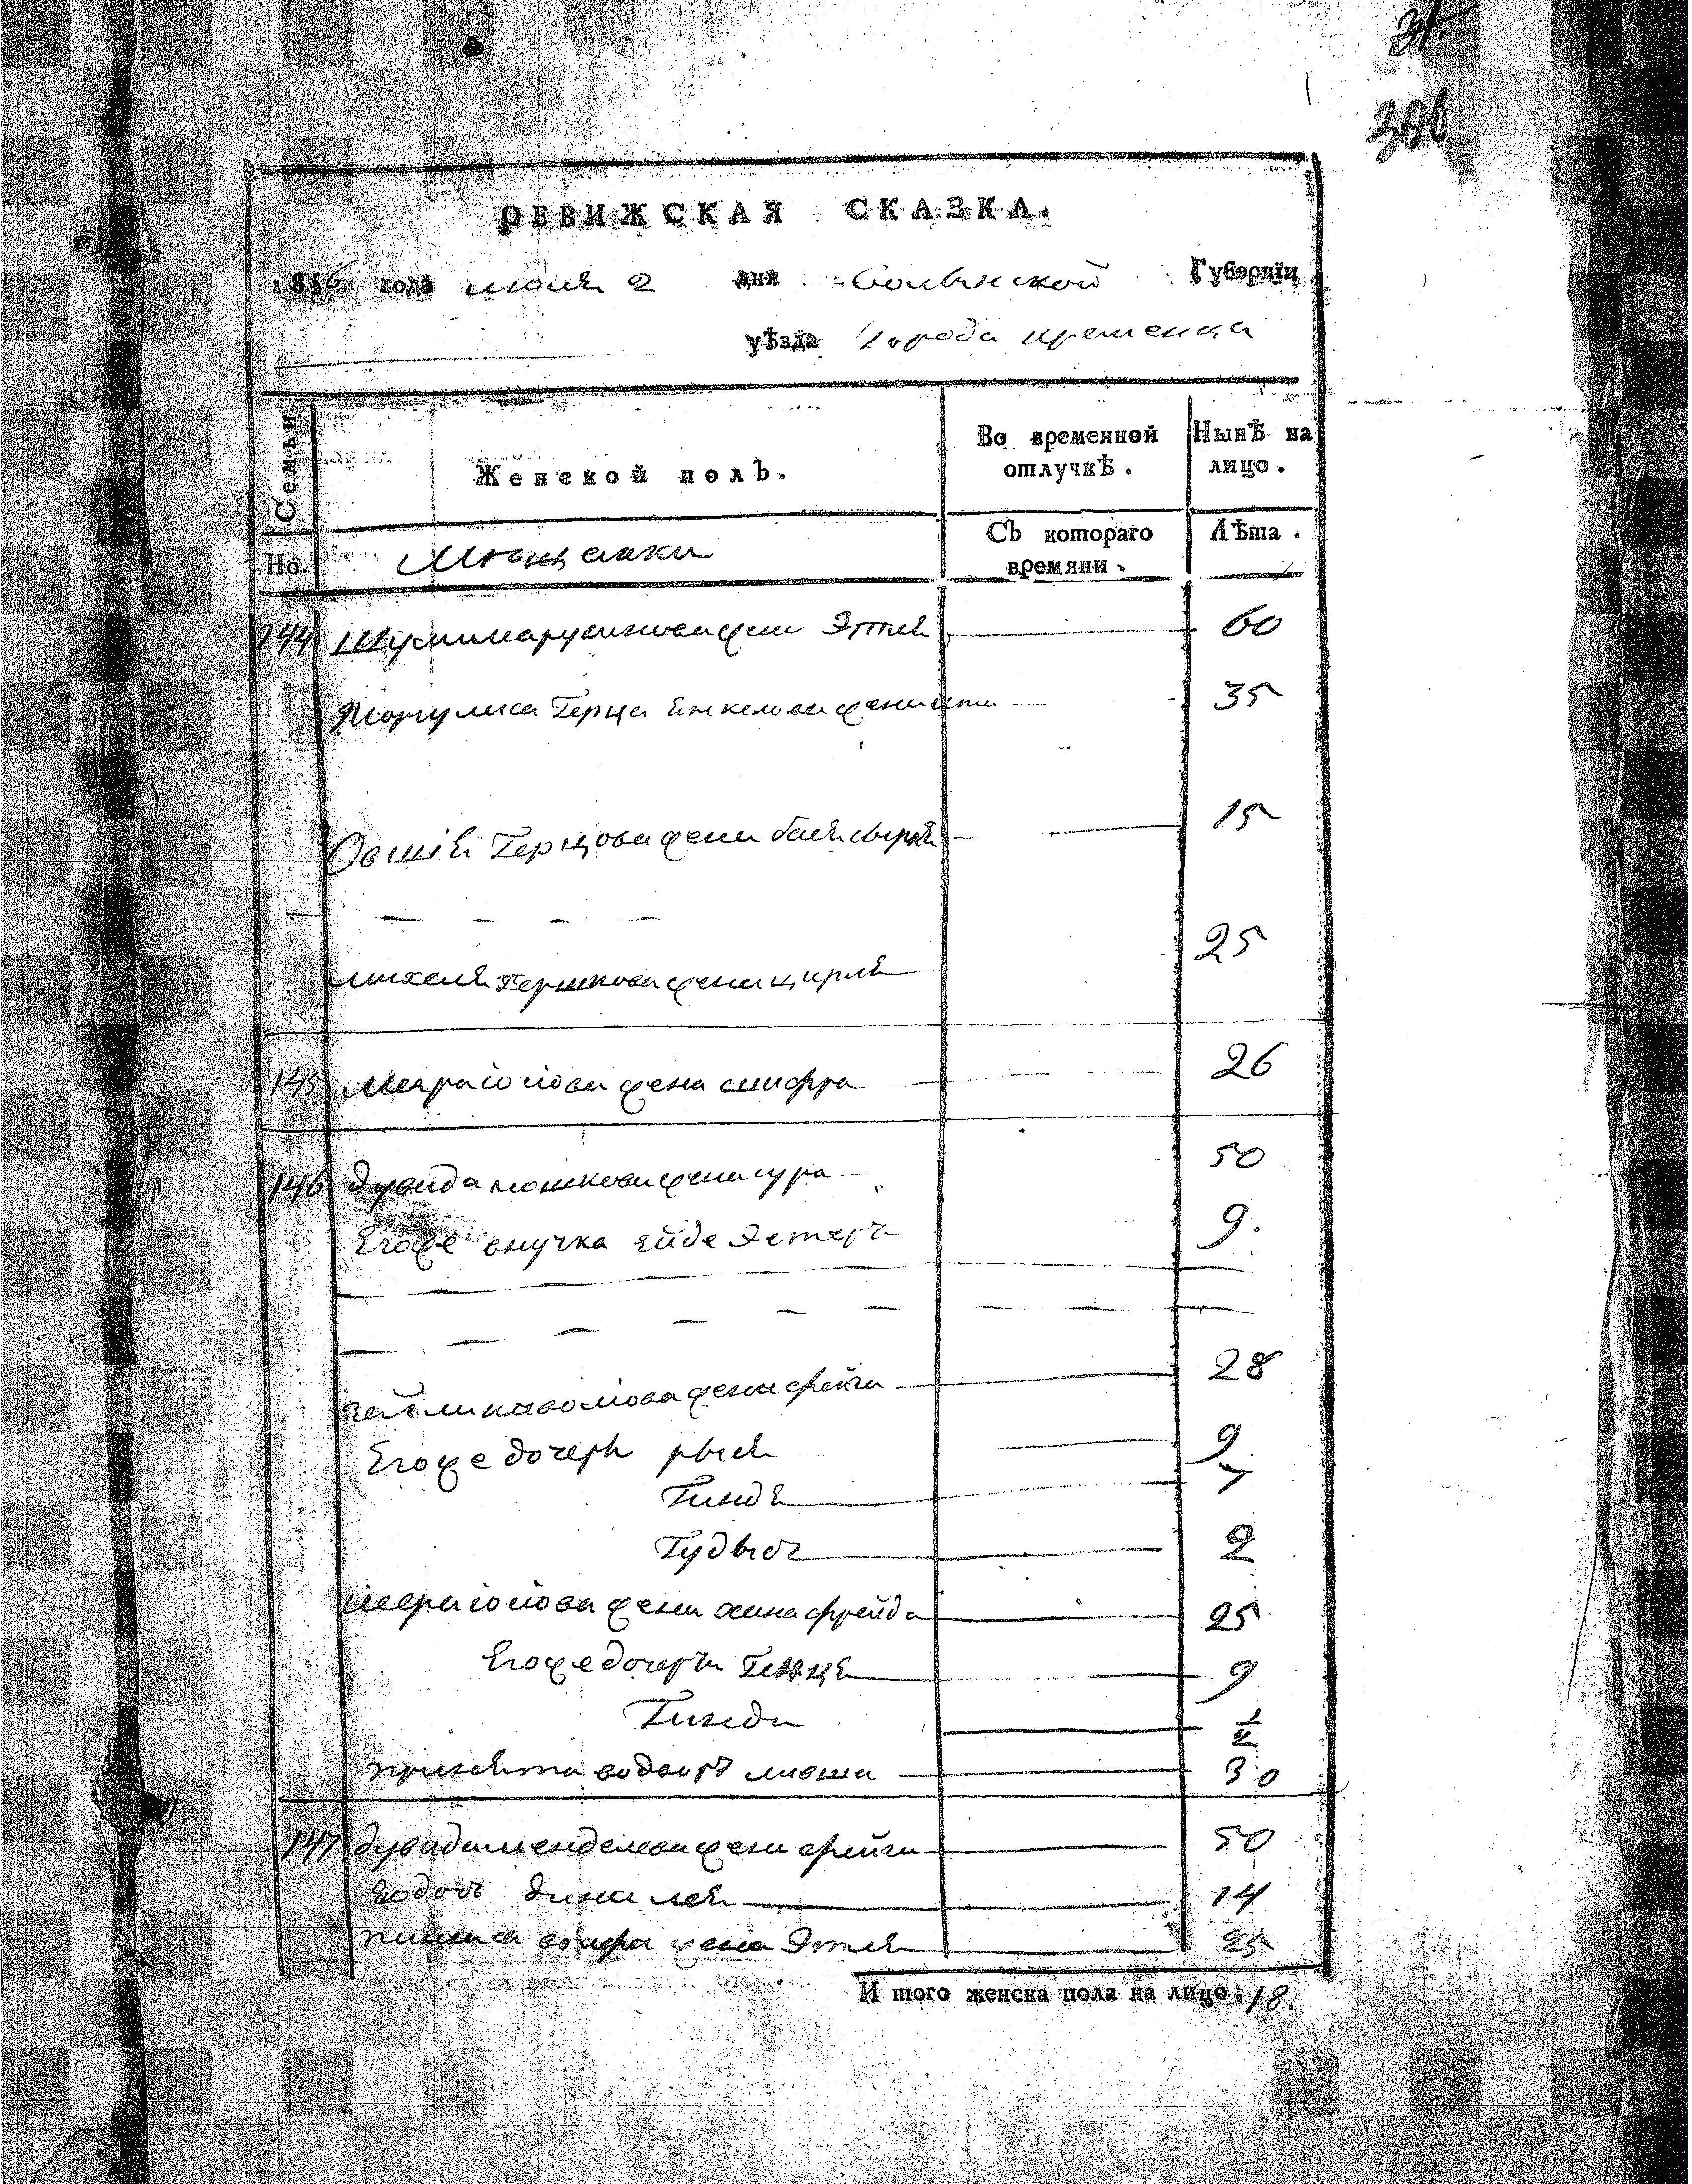 31.
306
РЕВИЖСКАЯ СКАЗКА.
1816 года июня 2 дня Волынской Губернїи
уѣзда города кременца
Семьи.
Женской полъ.
Во временной отлучкѣ.
Нынѣ на лицо.
Но.
Мещанки
Съ котораго времяни.
Лѣта.
144 жена Этля 60
Маргулиса Герца Янкелова жена 35
Овшія Герцова жена бася 15
михеля Гершкова жена цирля 25
145 меера іосіова жена шифра 26
146 дувида мошкова жена сура 50
Егоже внучка ейде Эстеръ 9.
жена фейга 28
Егоже дочери рыся 9
Гиндя 7
Гудысъ 2
меера іосіова жена хана фрейда 25
Егоже дочери Генця 9
Гинда ½
принята во дворъ 30
147 дувида менделева жена фейга 50
Его дочь дина лея 14
жена Этля 25
И того женска пола на лицо: 18.